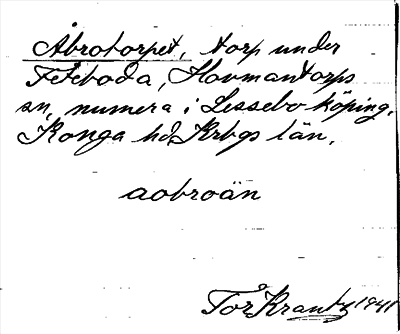 Åbrotorpet, torp under
Feteboda, Hovmantorps
sn, numera i Lessebo köping,
Konga hd Krbgs län.
aobroän
Tor Krantz 1941